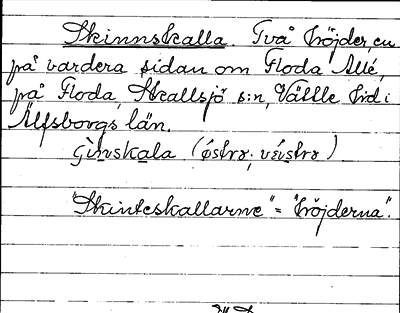 Skinnskalla. Två höjder, en
på vardera sidan om Floda Allé,
på Floda, Skallsjö s:n, Vättle hd i
Älfsborgs län.
(östra, västra)
"Skinteskallarne" = "höjderna".